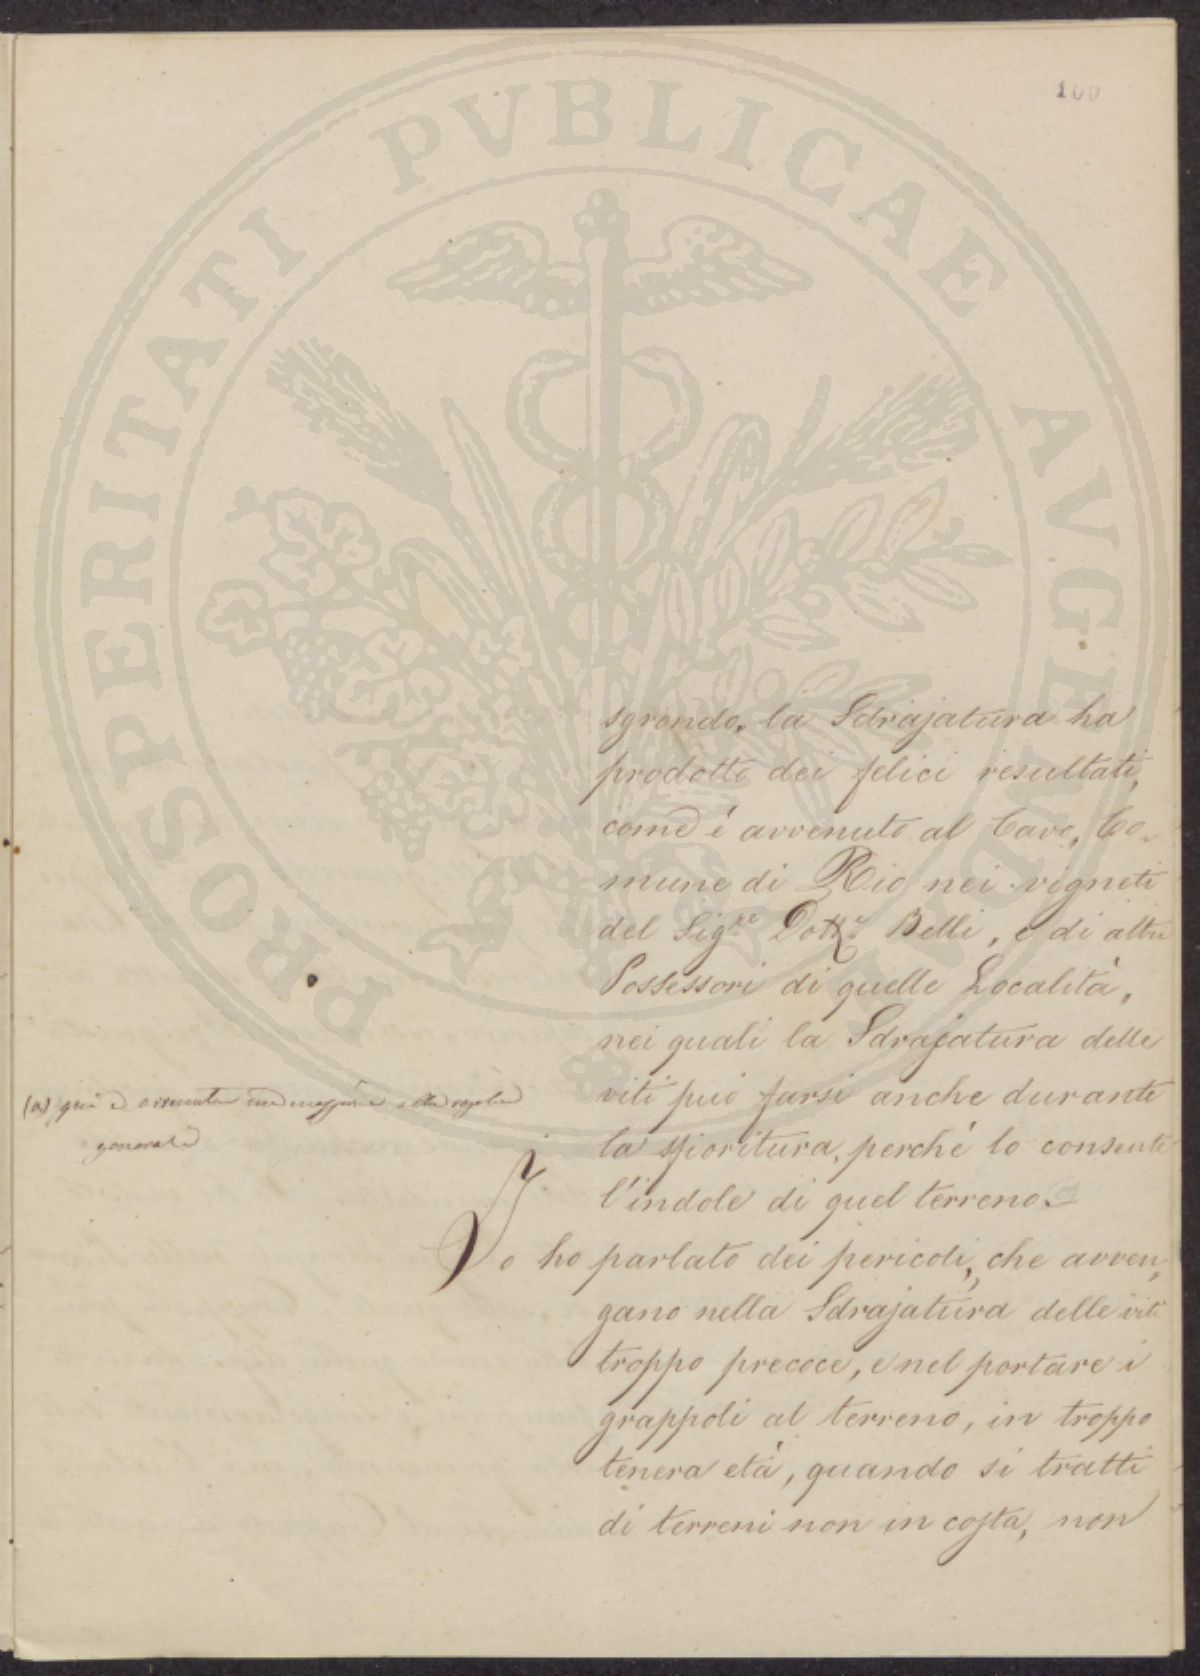 100
PROSPERITATI PVBLICAE AVGENDAE
sgrondo, la Sdrajatura ha
prodotto dei felici resultati,
come é avvenuto al Cavo, Co-
mune di Rio nei vigneti
del Sig.re Dott.e Belli, e di altri
Possessori di quelle Località,
nei quali la Sdrajatura delle
viti può farsi anche durante
la sfioritura, perché lo consente
l'indole di quel terreno.
(a) qui è
generale
Io ho parlato dei pericoli, che avven,
gano nella Sdrajatura delle viti
troppo precoce, e nel portare i
grappoli al terreno, in troppo
tenera età, quando si tratti
di terreni non in costa, non